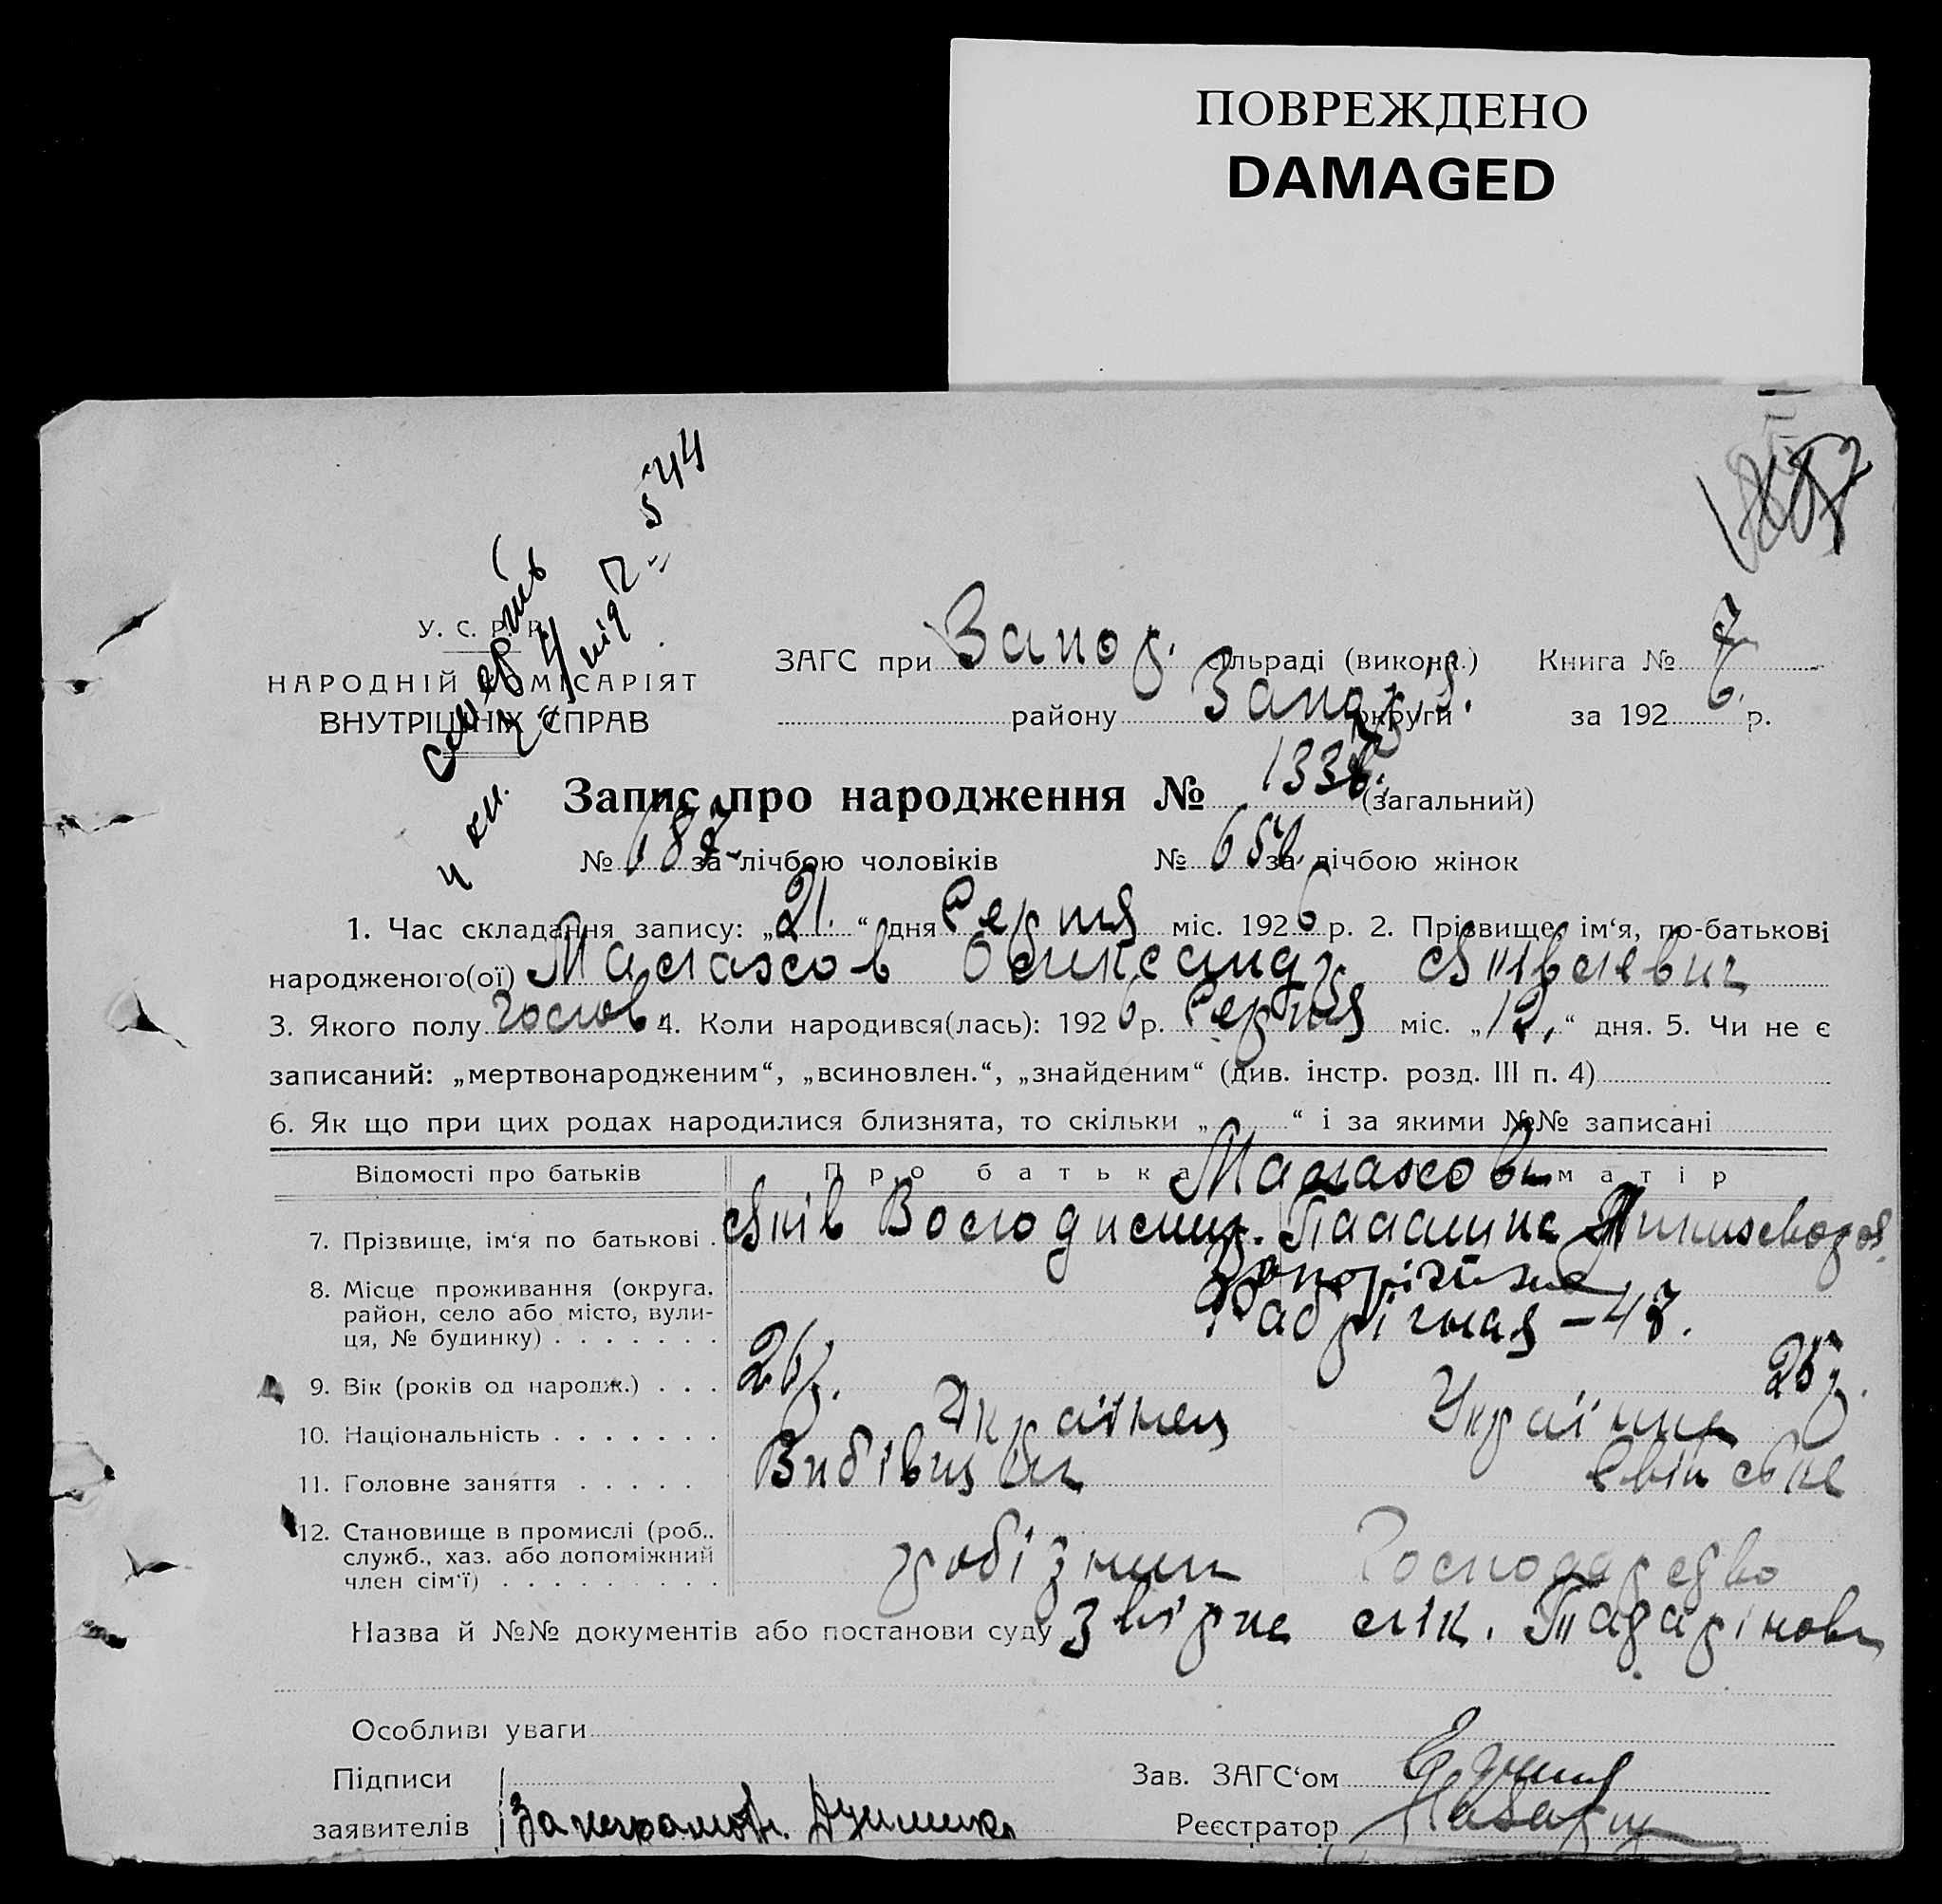 ПОВРЕЖДЕНО
DAMAGED
544
У. С. Р. Р.
НАРОДНІЙ КОМІСАРІЯТ
ВНУТРІШНІХ СПРАВ
ЗАГС при Запор. сільраді (викон.) Книга № 7
району Запор. округи за 1926 р.
Запис про народження № 133 (загальний)
№ 687 за лічбою чоловіків № 65 за лічбою жінок
1. Час складання запису: „21.“ дня Серпня міс. 1926 р. 2. Прізвище, ім‘я, по-батькові
народженого(ої) Малахов Олександр Яківлевич
3. Якого полу чолов. 4. Коли народився(лась): 1926 р. Серпня міс. „12.“ дня. 5. Чи не є
записаний: „мертвонародженим“, „всиновлен.“, „знайденим“ (див. інстр. розд. III п. 4)
6. Як що при цих родах народилися близнята, то скільки „ “ і за якими №№ записані
Відомості про батьків Про батька матір
Малахови
7. Прізвище, ім‘я по батькові . Яків Володимир.
8. Місце проживання (округа, район, село або місто, вулиця, № будинку) . . . . . . . Запоріжже
Фабрічная – 47.
9. Вік (років од народж.) . . . 26 р. 25 р.
10. Національність . . . . . . . Українец Українка
11. Головне заняття . . . . . Вибівщик Свійське
12. Становище в промислі (роб., служб., хаз. або допоміжний член сім‘ї) . . . . . . . . . робізник Господарство
Назва й №№ документів або постанови суду звірка лік.
Особливі уваги
Підписи
заявителів За неграмотн.
Зав. ЗАГС‘ом
Реєстратор